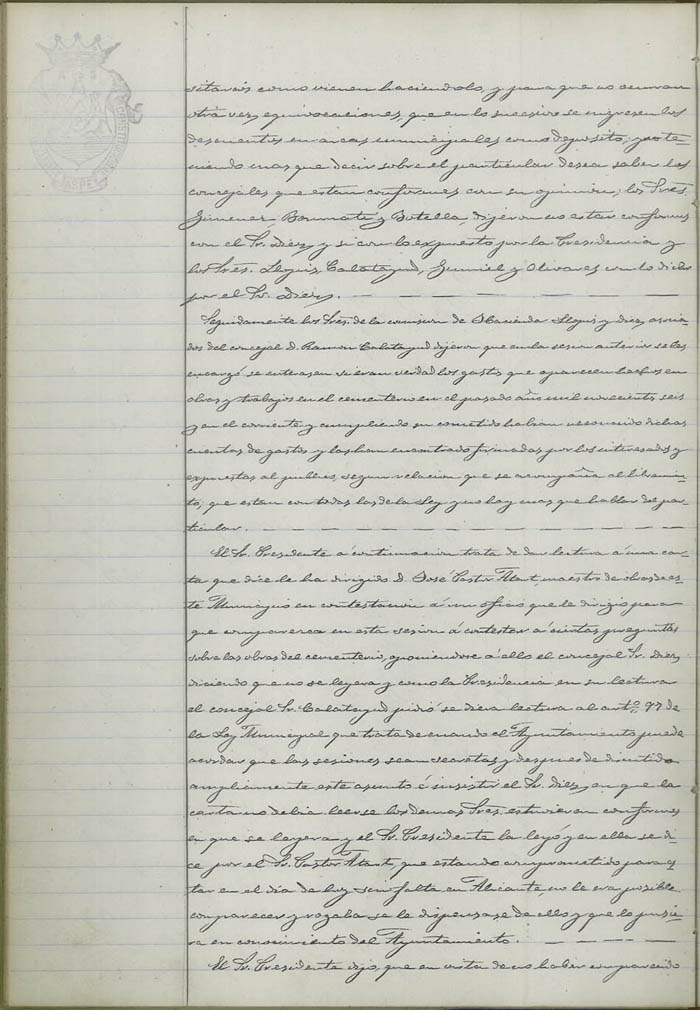 sitarás como vienen haciendolo, y para que no ocurran
otra vez equivocaciones, que en lo sucesivo se ingresen los
descuentos en arcas municipales como deposito; y no te-
niendo mas que decir sobre el particular desea saber los
concejales que estan conformes con su opinion; los Sres.
Gimenez, Bonmati y Botella, dijeron no estar conformes
con el Sr. Diez y si con lo expuesto por la Presidencia y
los Sres. Lloguis, Calatayud, Gumiel y Olivares con lo dicho
por el Sr. Diez.
Seguidamente los Sres. de la comision de Hacienda Lloguis y Diez, asocia-
dos del concejal D. Ramon Calatayud dijeron que en la sesion anterior se les
encargó se enterasen si eran verdad los gastos que aparecen hechos en
obras y trabajos en el cementerio en el pasado año mil novecientos seis
y en el corriente y cumpliendo su cometido habian reconocido dichas
cuentas de gastos y las han encontrado firmadas por los interesados y
expuestas al publico, segun relacion que se acompaña al libramien-
to, que estan con todas las de la Ley y no hay mas que hablar del par-
ticular.
El Sr. Presidente á continuacion trata de dar lectura á una car-
ta que dice le ha dirigido D. José Pastor maestro de obras de es-
te Municipio en contestacion á un oficio que le dirigió para
que comparezca en esta sesion á contestar á ciertas preguntas
sobre las obras del cementerio, oponiendose á ello el concejal Sr. Diez,
diciendo que no se leyera y como la Presidencia en su lectura
el concejal Sr. Calatayud pidió se diera lectura al artº. 97 de
la Ley Municipal que trata de cuando el Ayuntamiento puede
acordar que las sesiones sean secretas y despues de discutido
ampliamente este asunto é insistir el Sr. Diez, en que la
carta no debia leerse los demas Sres. estuvieron conformes
en que se leyera y el Sr. Presidente la leyó y en ella se di-
ce por el Sr. Pastor que estando comprometido para es-
tar en el dia de hoy sin falta en Alicante, no le era posible
comparecer y rogaba se le dispensase de ello y que lo pusie-
ra en conocimiento del Ayuntamiento.
El Sr. Presidente dijo, que en vista de no haber comparecido